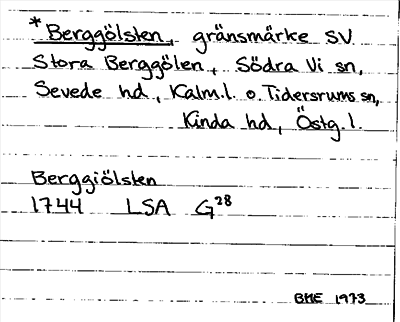 * Berggölsten, gränsmärke SV
Stora Berggölen, Södra Vi sn,
Sevede hd, Kalm.l. o. Tidersrums sn,
Kinda hd, Östg.l.
Berggiölsten
1744 LSA G28
BHE 1973